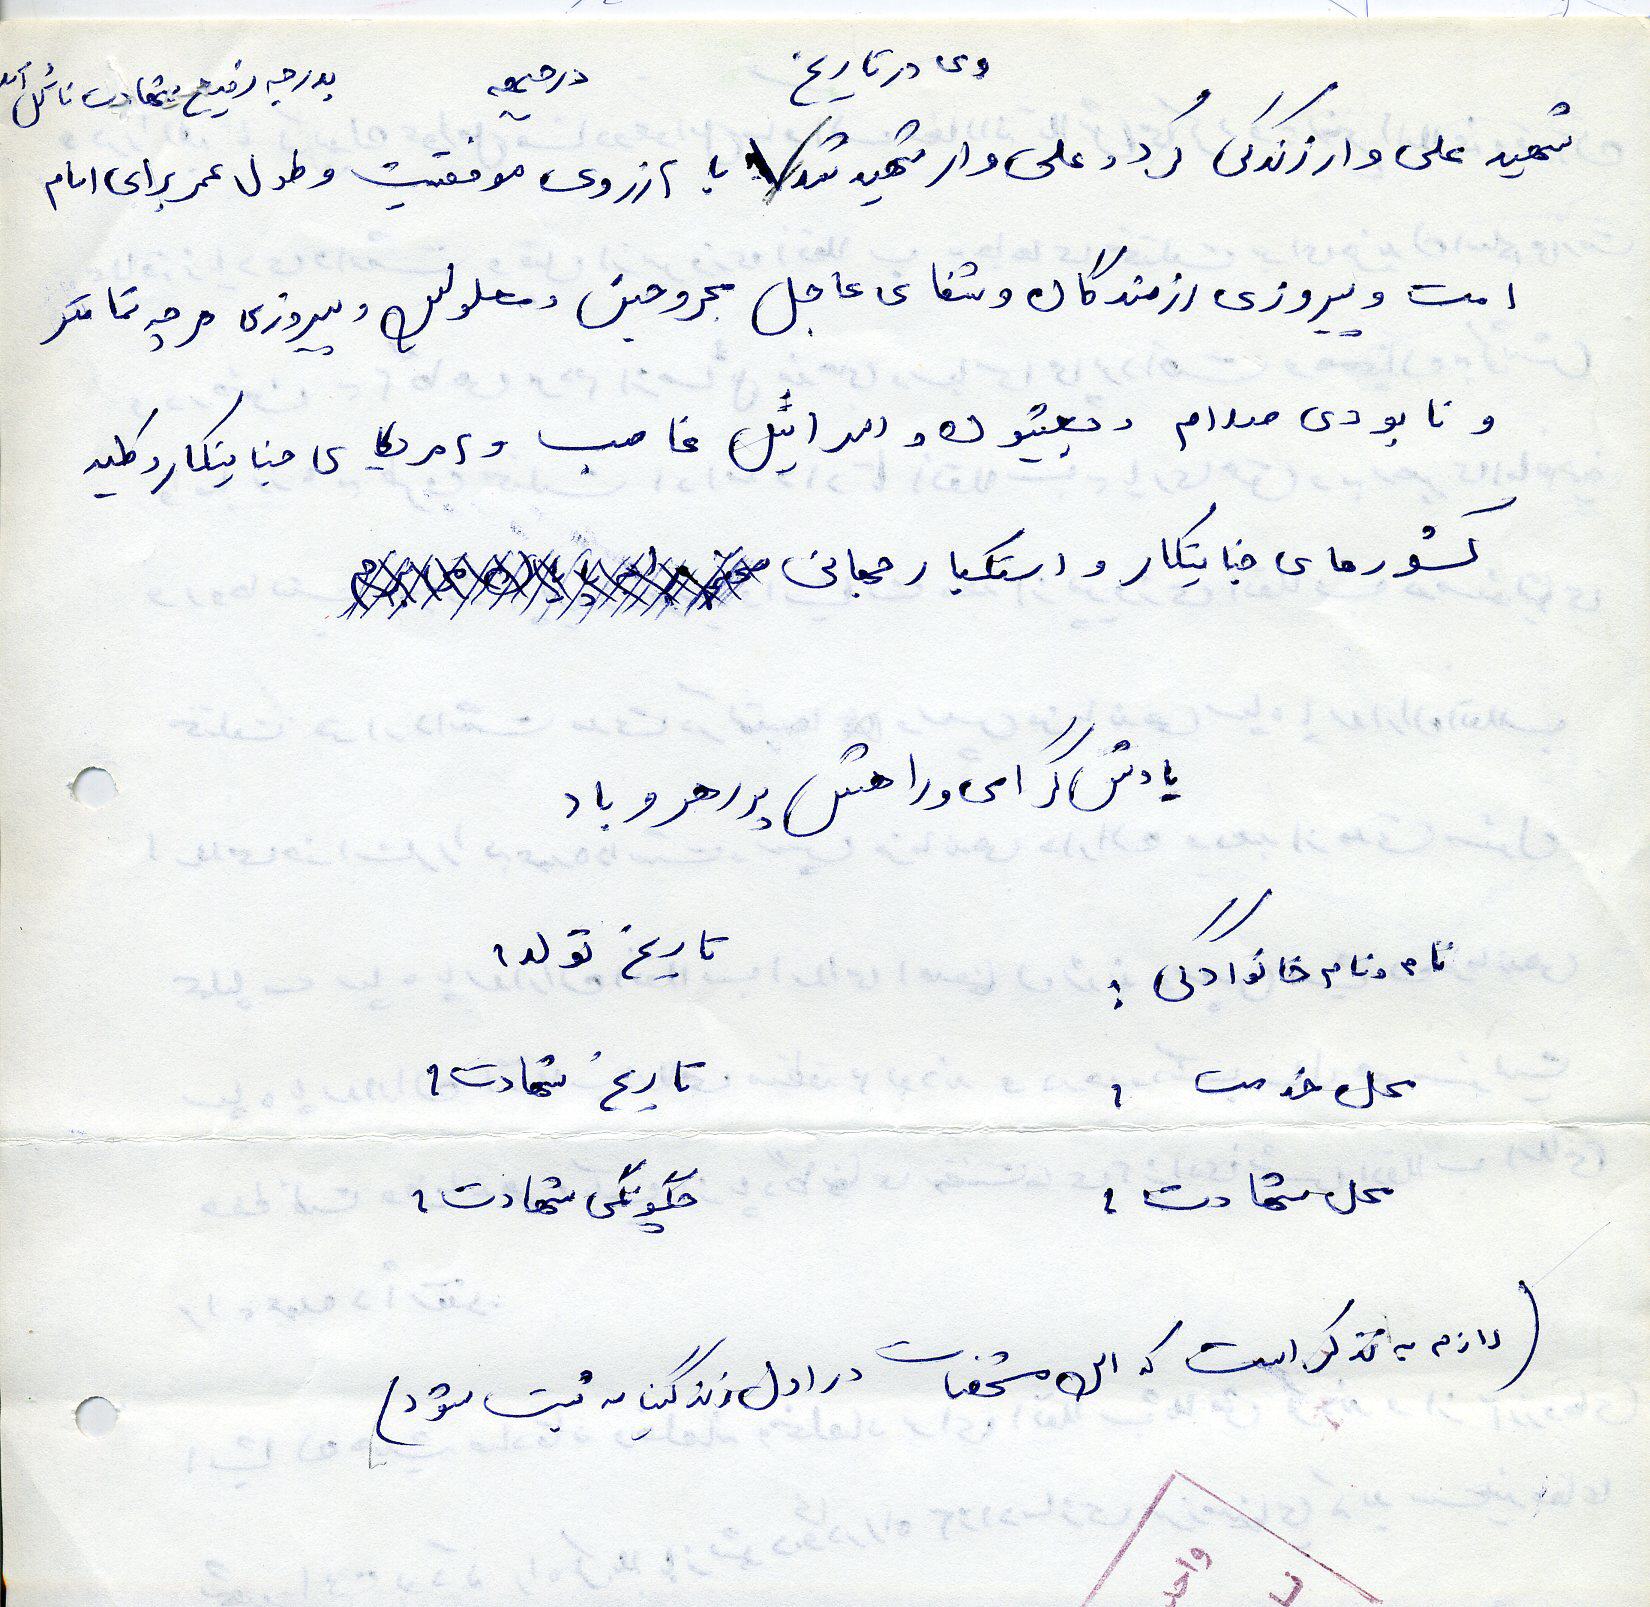 وی در تاریخ          در جبهه          بدرجه رفیع شهادت نائل آمد
شهید علی وار زندگی کرد و علی وار شهید شد با آرزوی موفقیت و طول عمر برای امام
امت و پیروزی رزمندگان و شفای عاجل مجروحین و معلولین و پیروزی هر چه تمامتر
و نابودی صدام و بعثیون و اسرائیل غاصب و آمریکای جنایتکار و کلیه
کشورهای جنایتکار و استکبار جهانی
یادش گرامی و راهش پر رهرو باد
نام و نام خانوادگی :          تاریخ تولد :
محل خدمت :          تاریخ شهادت :
محل شهادت :          چگونگی شهادت :
(لازم به تذکر است که این مشخصات در اول زندگینامه ثبت شود)
واحد